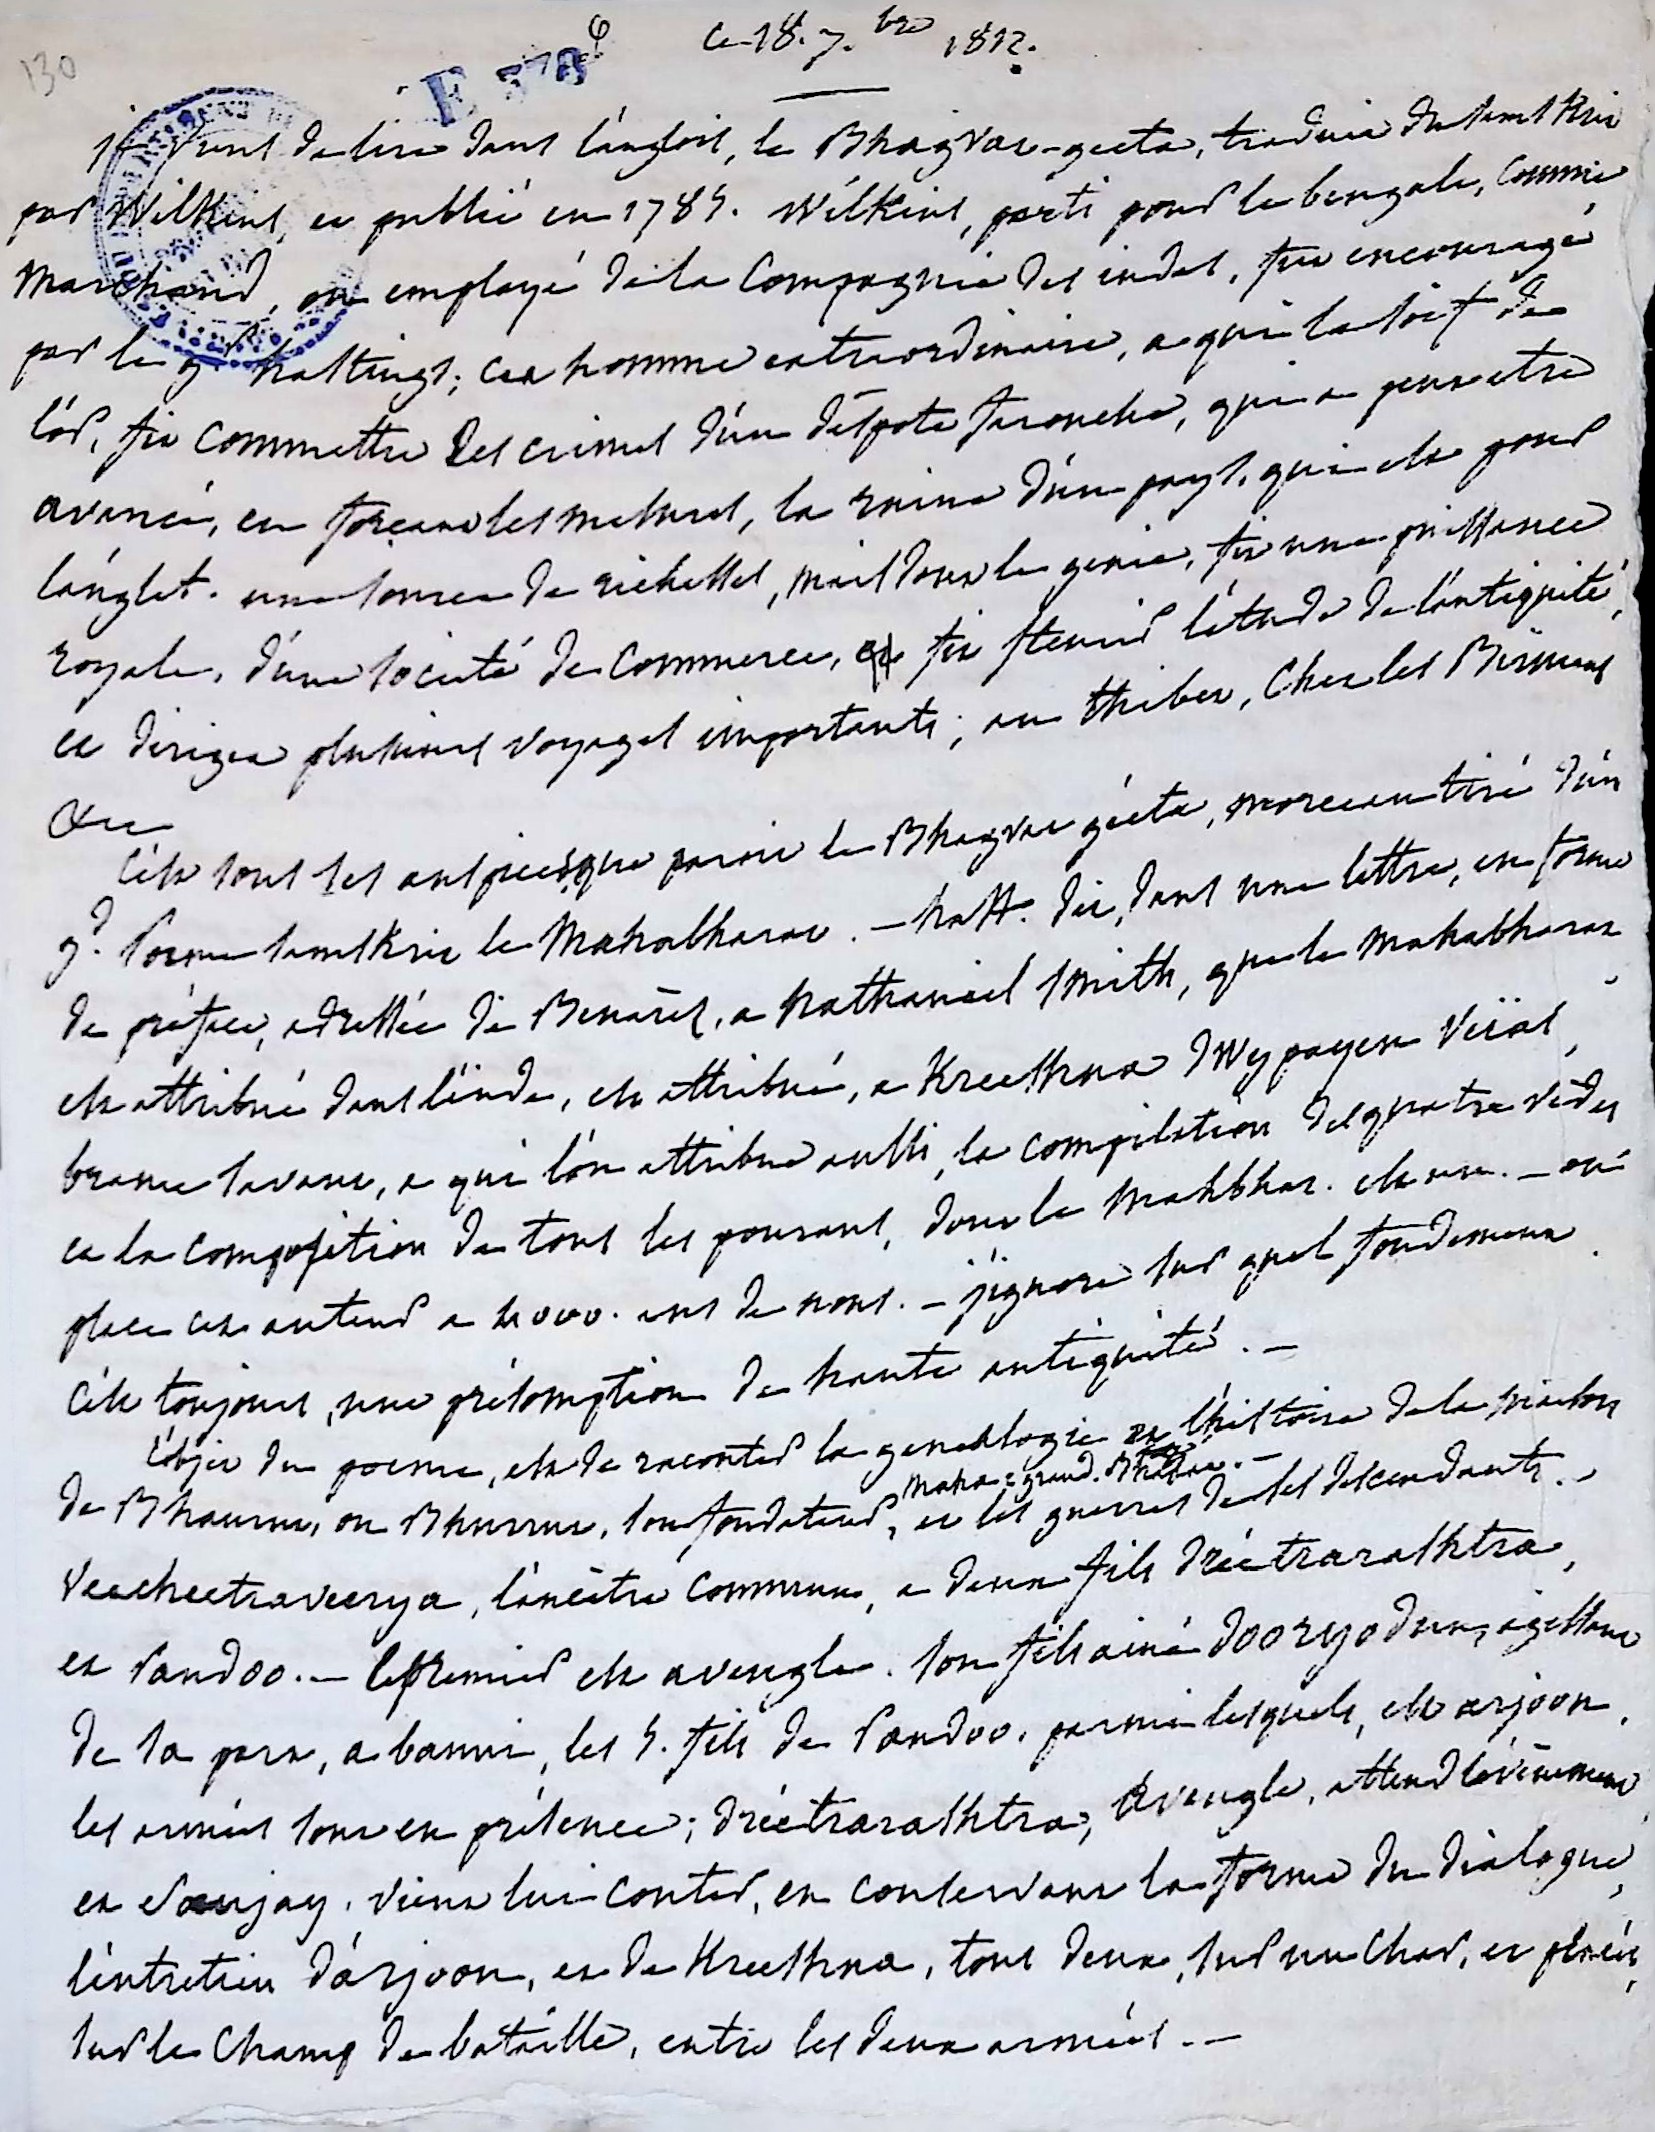 130
E 378
ce 18. 7.bre 1812.
je viens de lire dans l'anglois, le Bhagvat-geeta, traduit du samskrit
par Wilkins, et publié en 1785. Wilkins, parti pour le bengale, comme
marchand, ou employé de la Compagnie des indes, fut encouragé
par le gl hastings; cet homme extraordinaire, a qui la soif de
l'or, fit commettre des crimes d'un despote farouche, qui a peut etre
avancé, en forçant les mesures, la ruine d'un pays, qui est pour
l'anglet. une source de richesses, mais dont le genie, fit une puissance
royale, d'une societé de commerce, fit fleurir l'étude de l'antiquité,
et dirigea plusieurs voyages importants; au thibet, chez les Birmans
&c
C'est sous ses auspices, que parait le Bhagvat géeta, morceau tiré d'un
gd. Poeme samskrit le Mahabharat. - hast. dit, dans une lettre, en forme
de préface, adressée de Benarès, a Nathaniel Smith, que le Mahabharat
est attribué dans l'inde, est attribué, a Kreeshna Dwypayen Veïas,
brame savant, a qui l'on attribue aussi, la compilation des quatre védes
et la composition de tous les pourans, dont le Mahbhar. est un. - on
place cet auteur a 4000. ans de nous. - j'ignore sur quel fondement
C'est toujours, une présomption de haute antiquité. -
L'objet du poeme, est de raconter la genealogie et l'histoire de la maison
maha = grand. Bharat. -
de Bhaurut, ou Bhurrut, son fondateur, et les guerres de ses descendants. -
Veecheetraveerya, l'ancêtre commun, a deux fils Dréetrarashtra,
et Pandoo. - le premier est aveugle. son fils ainé Dooryodun, agissant
de sa part, a banni, les 5. fils de Pandoo. parmi lesquels, est arjoon.
les armées sont en présence; Dréetrarashtra, Aveugle, attend l'évènement
et Sanjay, vient lui conter, en conservant la forme du dialogue,
l'entretien d'arjoon, et de Kreeshna, tous deux, sur un char, et placés,
sur le champ de bataille, entre les deux armées. -